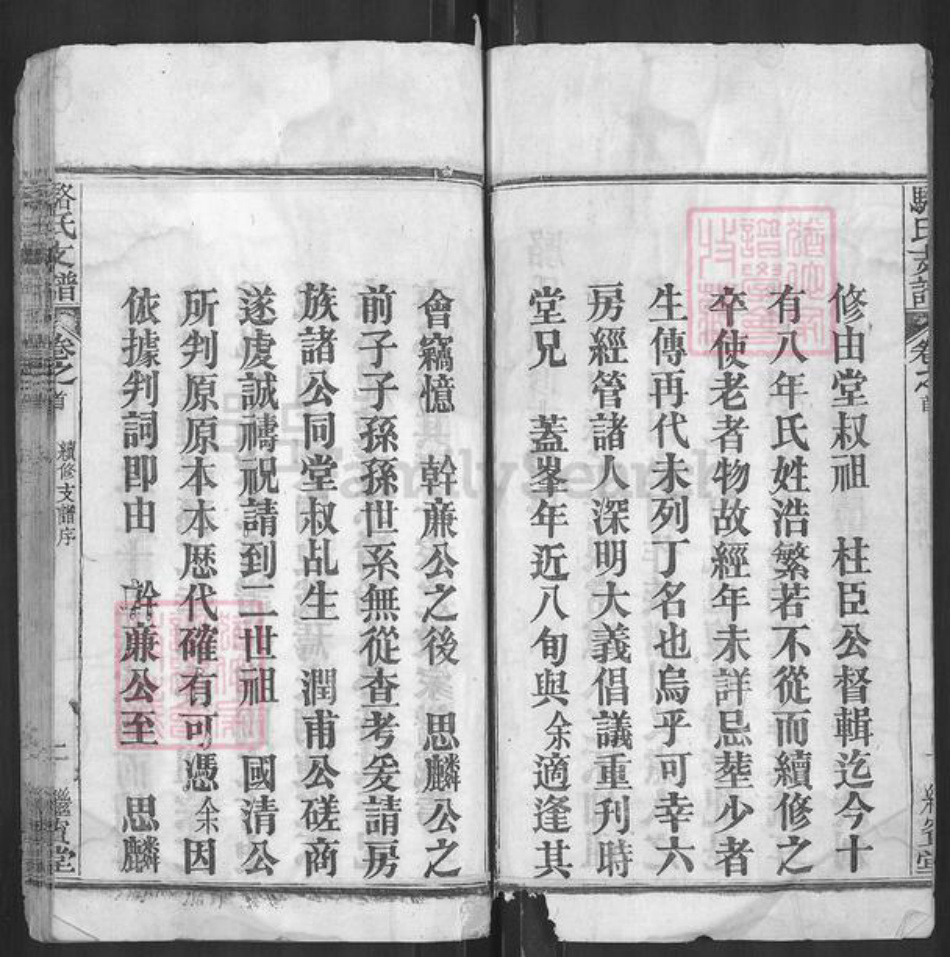 修由堂叔祖　柱臣公督輯迄今十
有八年氏姓浩繁若不從而續修之
卒使老者物故經年未詳忌塟少者
生傳再代未列丁名也烏乎可幸六
房經管諸人深明大義倡議重刊時
堂兄　蓋峯年近八旬與余適逢其
會竊憶　幹亷公之後　思麟公之
前子子孫孫世系無從查考爰請房
族諸公同堂叔乩生　潤甫公磋商
遂虔誠禱祝請到二世祖　國清公
所判原原本本歷代確有可憑余因
依據判詞即由　幹亷公至　思麟
駱氏支譜
卷之首
續修支譜序
二
繼賓堂
FamilySearch